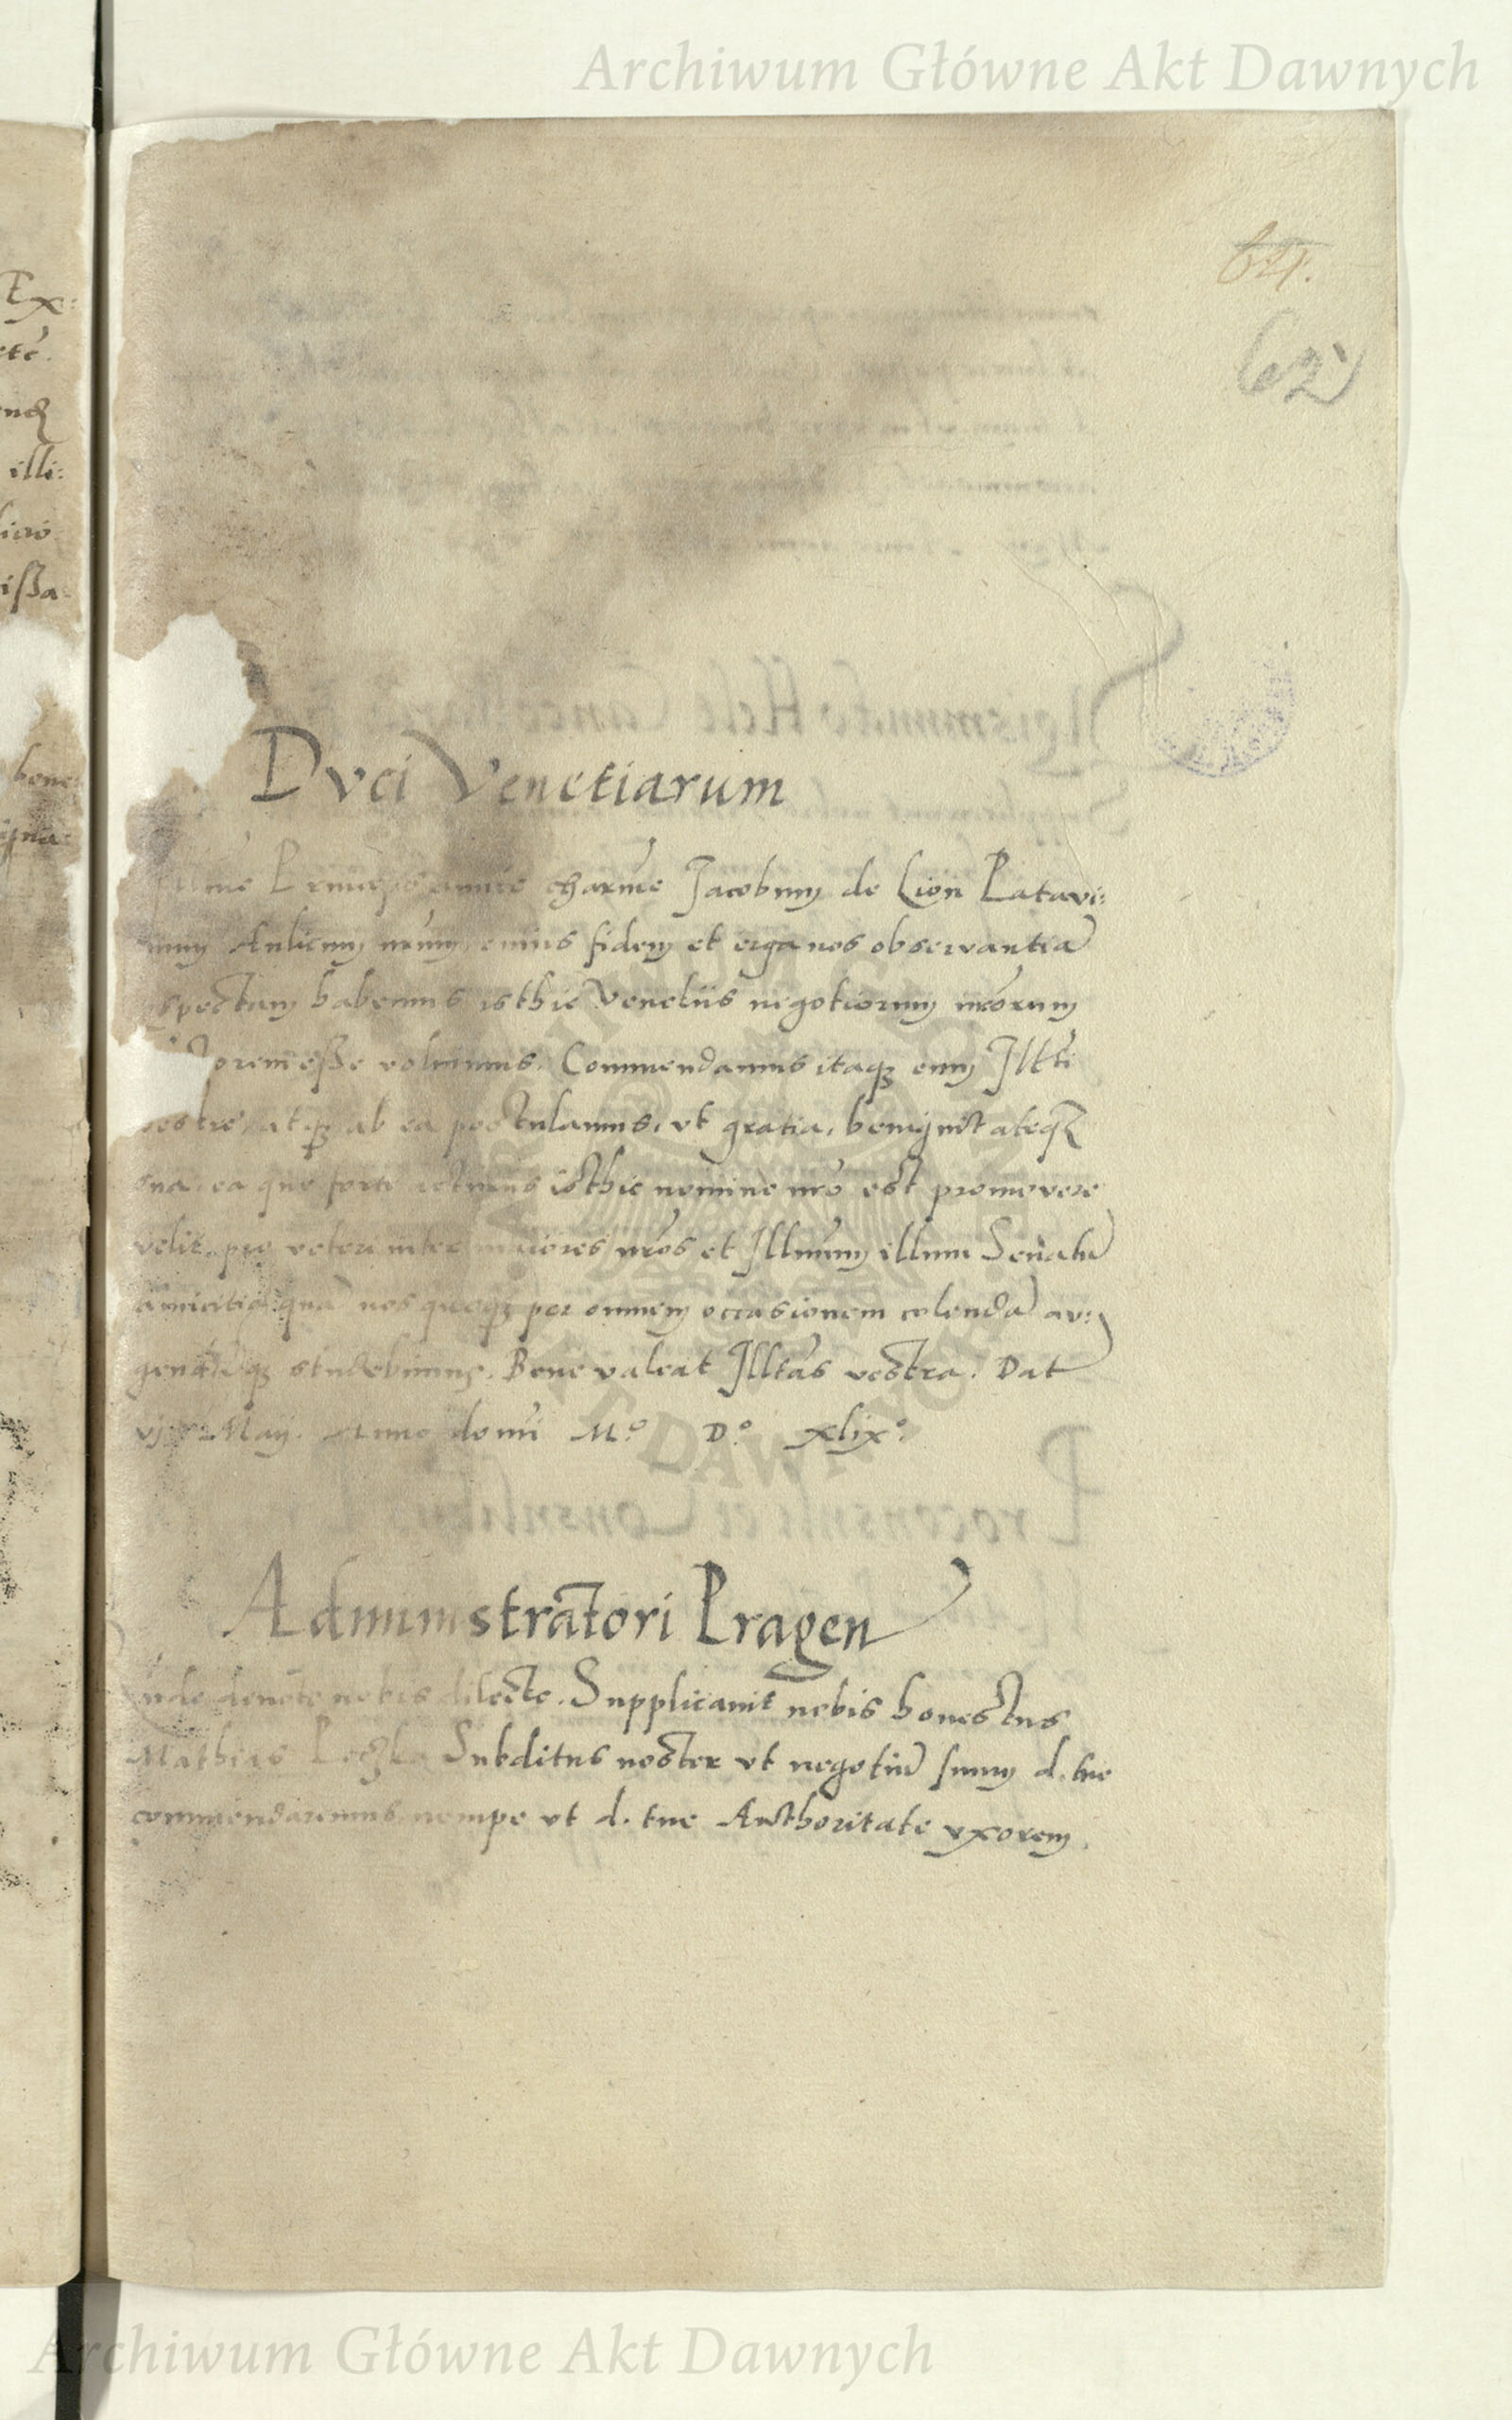 Archiwum Główne Akt Dawnych
64.
62
Ex:
illi:
ißa
bone
Dvci Venetiarum
amice charme Jacobum de Lion Patavi:
num Aulicum nrum, cuius fidem et erga nos observantiā
spectam habemus isthic Venetiis negotiorum nrorum
orem eße volumus. Commendamus itaqȝ eum Illti
vestre, atqȝ ab ea postulamus, vt gratia, benignitateqȝ
sua, ea que forte isthic nomine nro est promovere
velit, pro veteri inter maiores nros et Illmum illum Senatū
amicitia quā nos quoqȝ per omnem occasionem colendā au:
gendāqȝ studebimus. Bene valeat Illtas vestra. Dat
May. Anno domi M.º D.º xlixº.
Administratori Pragen
devote nobis dilecte. Supplicavit nobis honestus
Mathias Subditus noster vt negotiū suum d. tue
commendaremus nempe vt d. tue Authoritate vxorem
Archiwum Główne Akt Dawnych